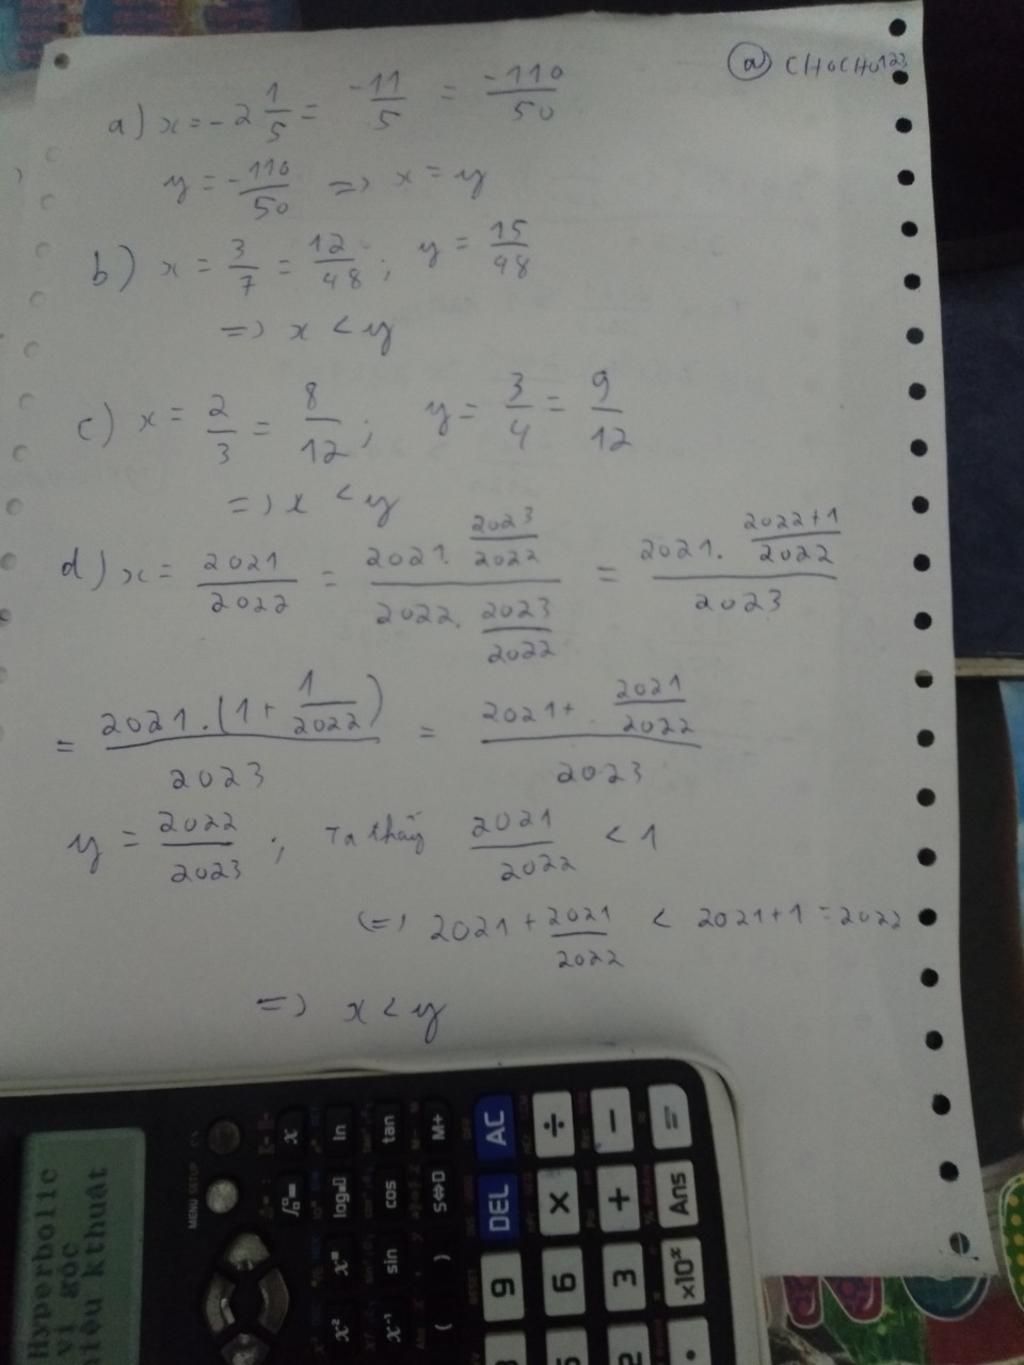 @ CHOCHO123
a) x = -2 1/5 = -11/5 = -110/50
y = -110/50 => x = y
b) x = 3/7 = 12/48; y = 15/48
=> x < y
c) x = 2/3 = 8/12; y = 3/4 = 9/12
=> x < y
d) x = 2021/2022 = (2021. 2023/2022)/(2022. 2023/2022) = (2021. (2022+1)/2022)/2023
= (2021.(1+ 1/2022))/2023 = (2021+ 2021/2022)/2023
y = 2022/2023; Ta thấy 2021/2022 < 1
(=) 2021 + 2021/2022 < 2021+1 = 2022
=> x < y
Hyperbolic
vị góc
hiệu kthuật
MENU SETUP
x ln tan M+ AC ÷ − =
∫ log cos S⇔D DEL × + Ans
xⁿ sin ) 9 6 3 ×10ˣ
x² x⁻¹ ( 2 .